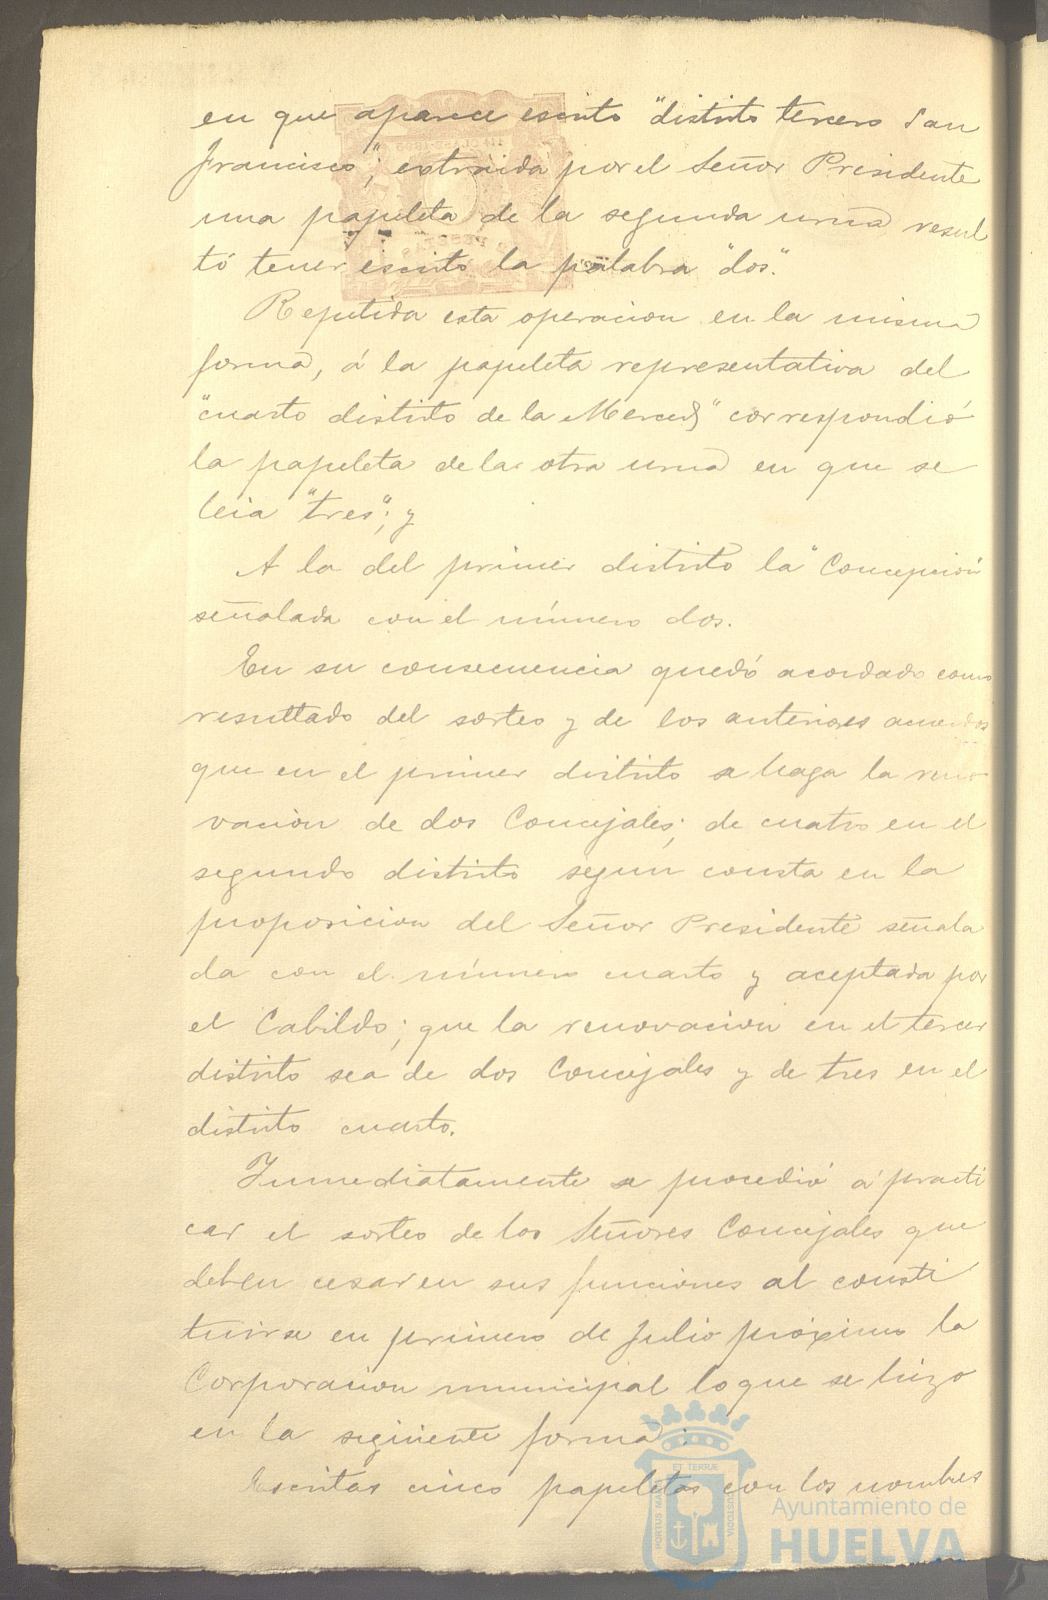 en que aparece escrito "distrito tercero San
Francisco"; extraida por el Señor Presidente
una papeleta de la segunda urna resul
tó tener escrito la palabra "dos".
Repetida esta operacion en la misma
forma, á la papeleta representativa del
"cuarto distrito de la Merced" correspondió
la papeleta de la otra urna en que se
leia "tres"; y
A la del primer distrito la "Concepcion"
señalada con el número dos.
En su consecuencia quedó acordado como
resultado del sorteo y de los anteriores acuerdos
que en el primer distrito se haga la reno
vacion de dos Concejales; de cuatro en el
segundo distrito segun consta en la
proposicion del Señor Presidente señala
da con el número cuarto y aceptada por
el Cabildo; que la renovacion en el tercer
distrito sea de dos Concejales y de tres en el
distrito cuarto.
Inmediatamente se procedió á practi
car el sorteo de los Señores Concejales que
deben cesar en sus funciones al consti
tuirse en primero de Julio próximo la
Corporacion municipal lo que se hizo
en la siguiente forma:
Escritas cinco papeletas con los nombres
PORTUS MARIS
ET TERRÆ
CUSTODIA
Ayuntamiento de
HUELVA